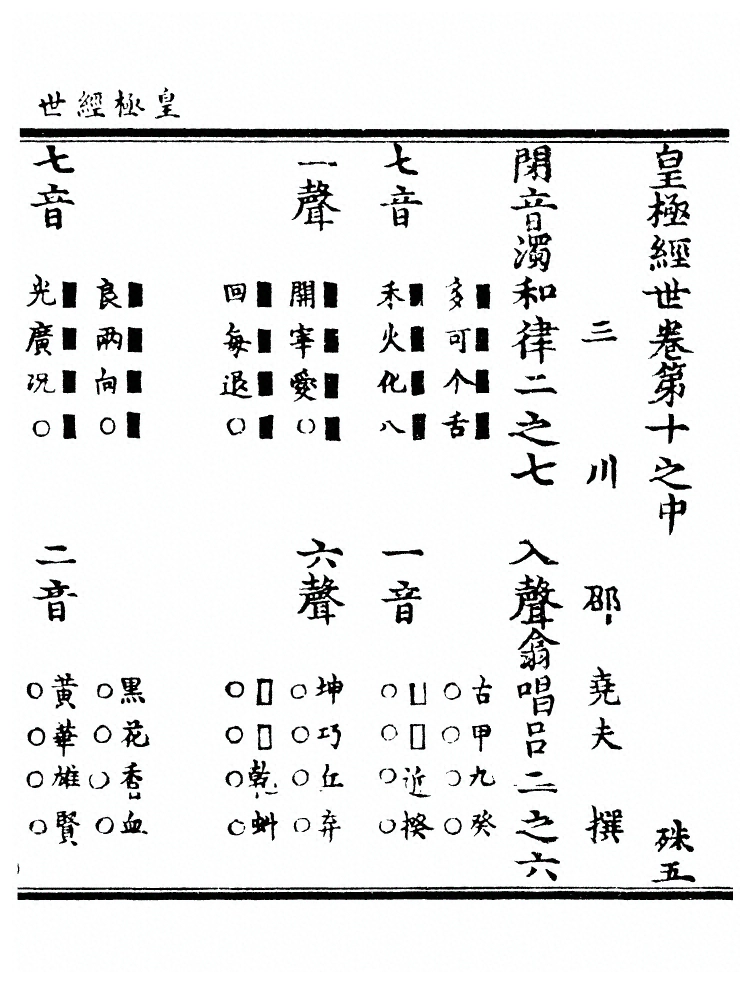 皇極經世
皇極經世卷第十之中 殊五
三川 邵堯夫 撰
閉音濁和律二之七 入聲翕唱呂二之六
■■■■ 古甲九癸
多可个舌 ○○○○
■■■■ □□近揆
七音 禾火化八 一音 ○○○○
■■■■ 坤巧丘弃
一聲 開宰愛○ 六聲 ○○○○
■■■■ □□乾虯
回每退○ ○○○○
■■■■ 黑花香血
良兩向○ ○○○○
■■■■ 黃華雄賢
七音 光廣況○ 二音 ○○○○